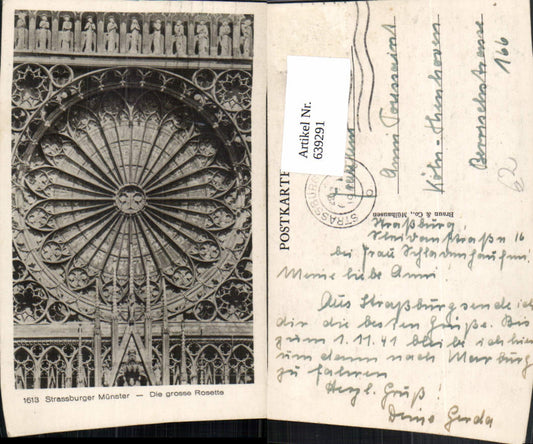 1613 Strassburger Münster — Die grosse Rosette
Artikel Nr.
639291
POSTKARTE
STRASSBURG
Braun & Co., Mülhausen
Anni Toussaint
Köln-
166
62
Straßburg
16
bei Frau
Meine liebe Anni
Aus Straßburg sende ich
dir die besten Grüße. Bis
zum 1.11.41 bleibe ich hier
um dann nach Marburg
zu fahren
Herzl. Gruß
Deine Gerda